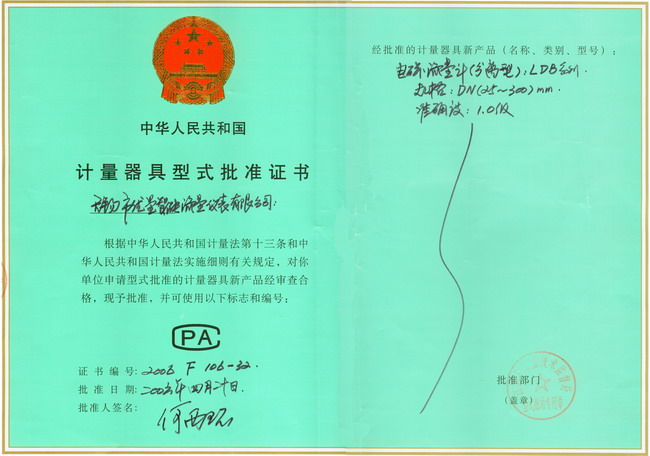 中华人民共和国
计量器具型式批准证书
流量仪表有限公司:
根据中华人民共和国计量法第十三条和中
华人民共和国计量法实施细则有关规定，对你
单位申请型式批准的计量器具新产品经审查合
格，现予批准，并可使用以下标志和编号：
PA
证书编号: F 106-32.
批准日期: 年四月二十日.
批准人签名:
经批准的计量器具新产品（名称、类别、型号）：
电磁流量计(分离型): LDB系列.
口径: DN(25~300)mm.
准确度: 1.0级
批准部门
（盖章）